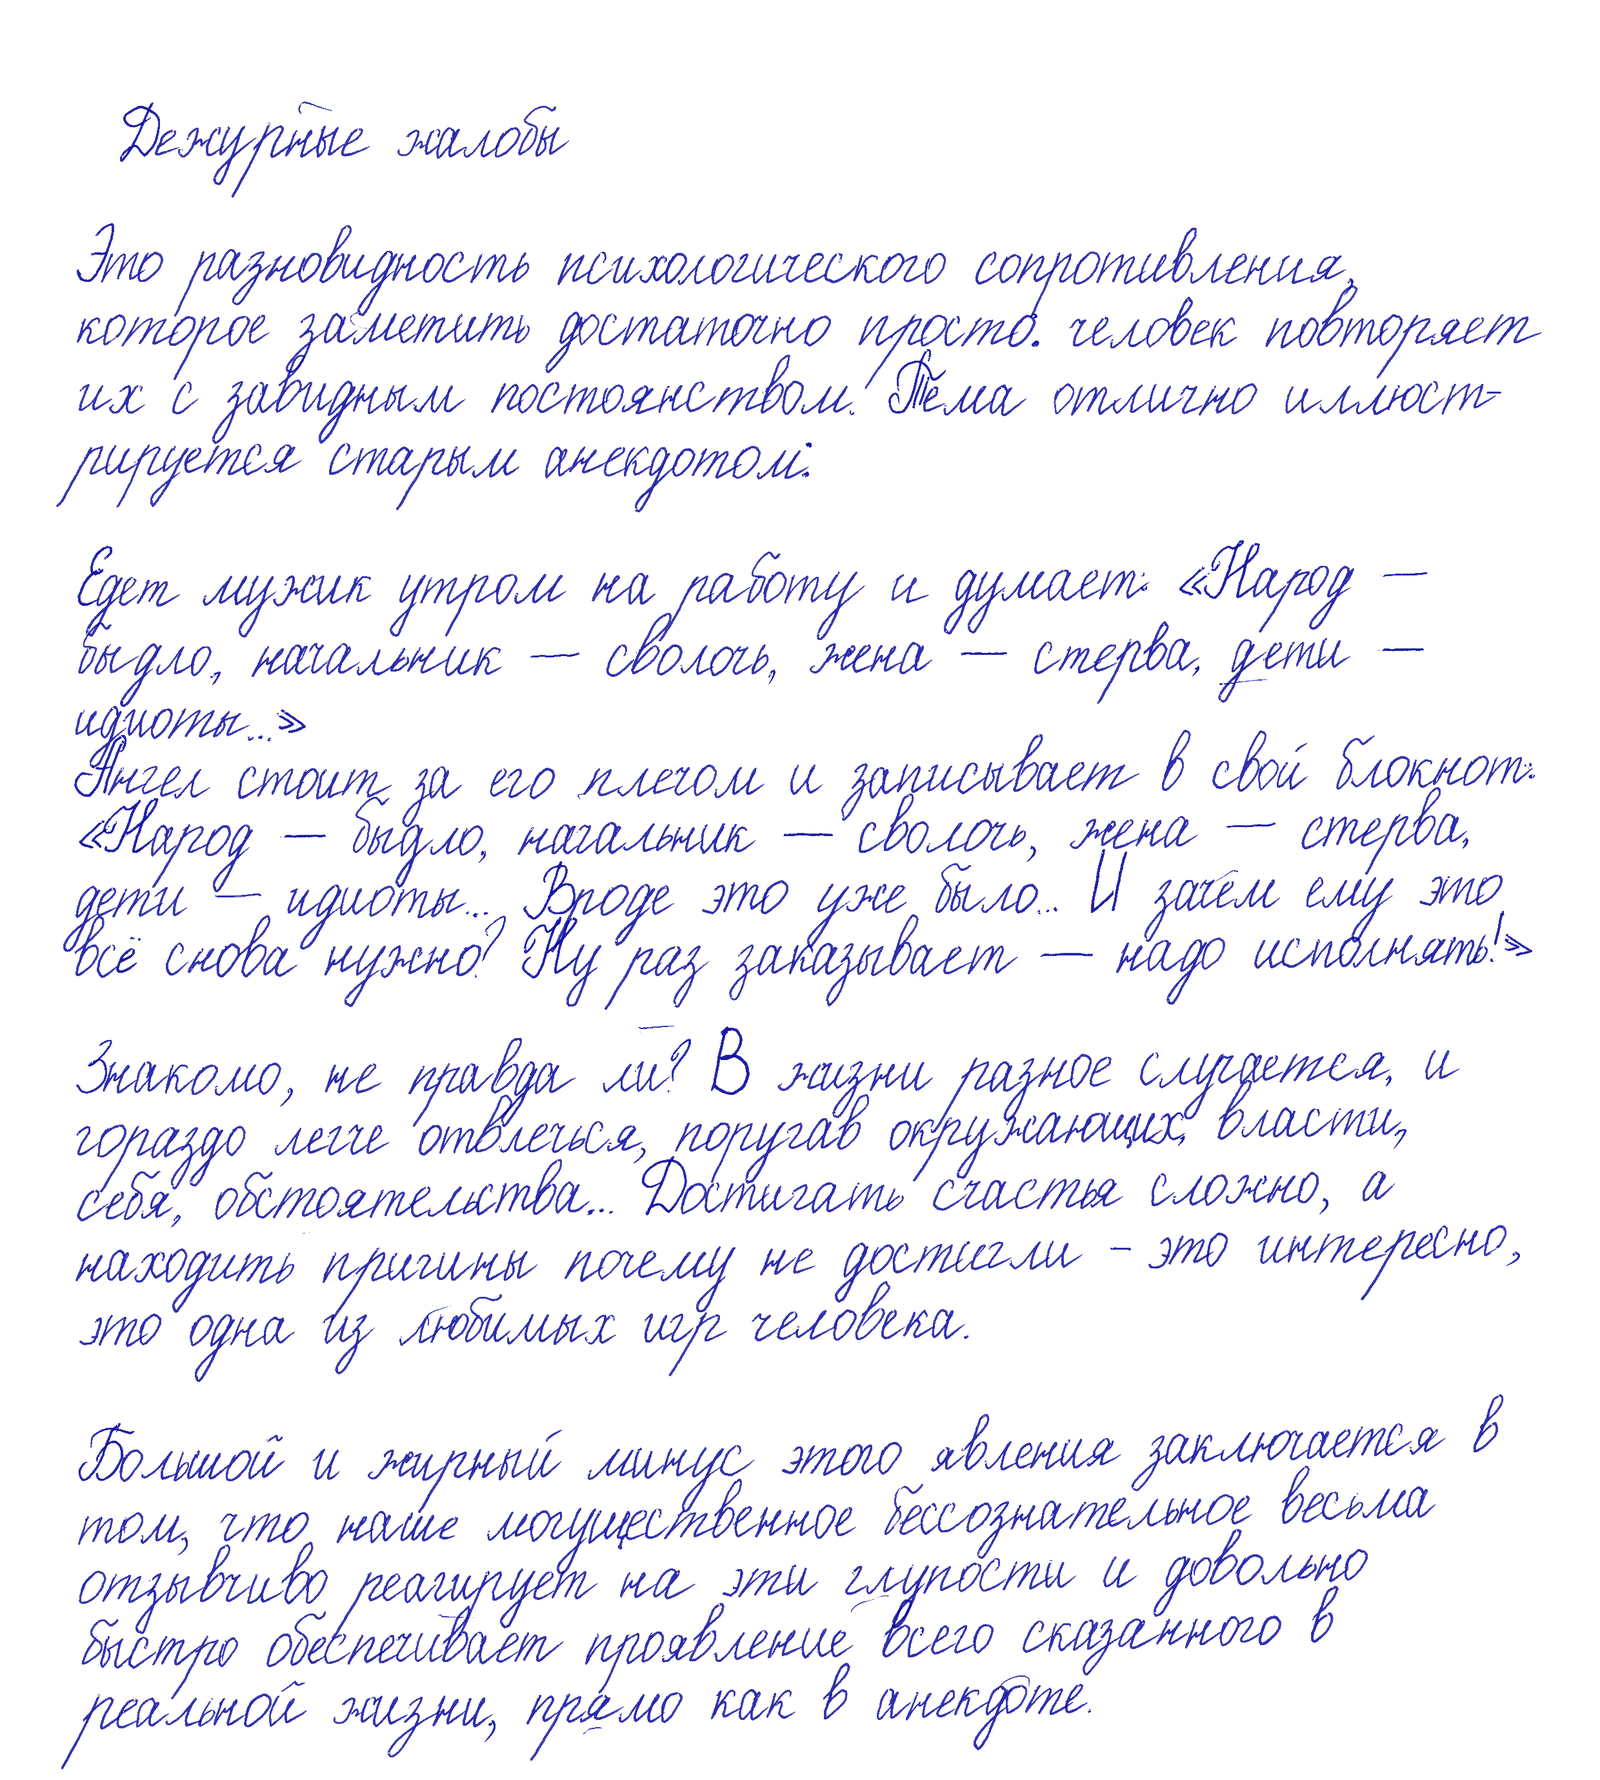 Дежурные жалобы
Это разновидность психологического сопротивления,
которое заметить достаточно просто. человек повторяет
их с завидным постоянством. Тема отлично иллюст-
рируется старым анекдотом:
Едет мужик утром на работу и думает: «Народ —
быдло, начальник — сволочь, жена — стерва, дети —
идиоты...»
Ангел стоит за его плечом и записывает в свой блокнот:
«Народ — быдло, начальник — сволочь, жена — стерва,
дети — идиоты... Вроде это уже было... И зачем ему это
всё снова нужно? Ну раз заказывает — надо исполнять!»
Знакомо, не правда ли? В жизни разное случается, и
гораздо легче отвлечься, поругав окружающих, власти,
себя, обстоятельства... Достигать счастья сложно, а
находить причины почему не достигли - это интересно,
это одна из любимых игр человека.
Большой и жирный минус этого явления заключается в
том, что наше могущественное бессознательное весьма
отзывчиво реагирует на эти глупости и довольно
быстро обеспечивает проявление всего сказанного в
реальной жизни, прямо как в анекдоте.